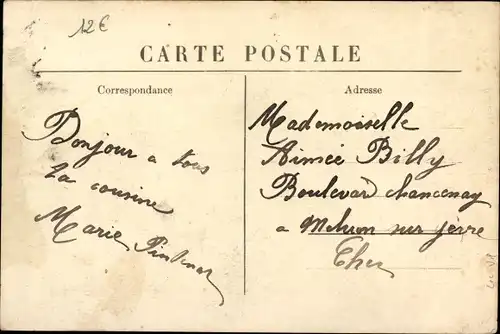 12€
CARTE POSTALE
Correspondance
Adresse
Bonjour a tous
la cousine
Marie
Mademoiselle
Aimée Billy
Boulevard chancenay
a Mehun sur yèvre
Cher